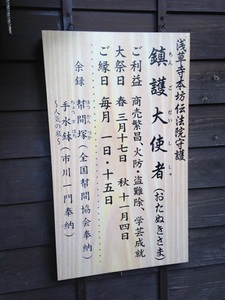 浅草寺本坊伝法院守護
ちんごだいししゃ
鎮護大使者(おたぬきさま)
ご利益 商売繁昌、火防・盗難除、学芸成就
大祭日 春 三月十七日 秋 十一月四日
ご縁日 毎月 一日・十五日
余録 幇間塚(全国幇間協会奉納)
手水鉢(市川一門奉納)